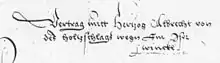 Vertrag mitt Hertzog Albrecht von
des holtzschlags wegen Am Iser
winckl